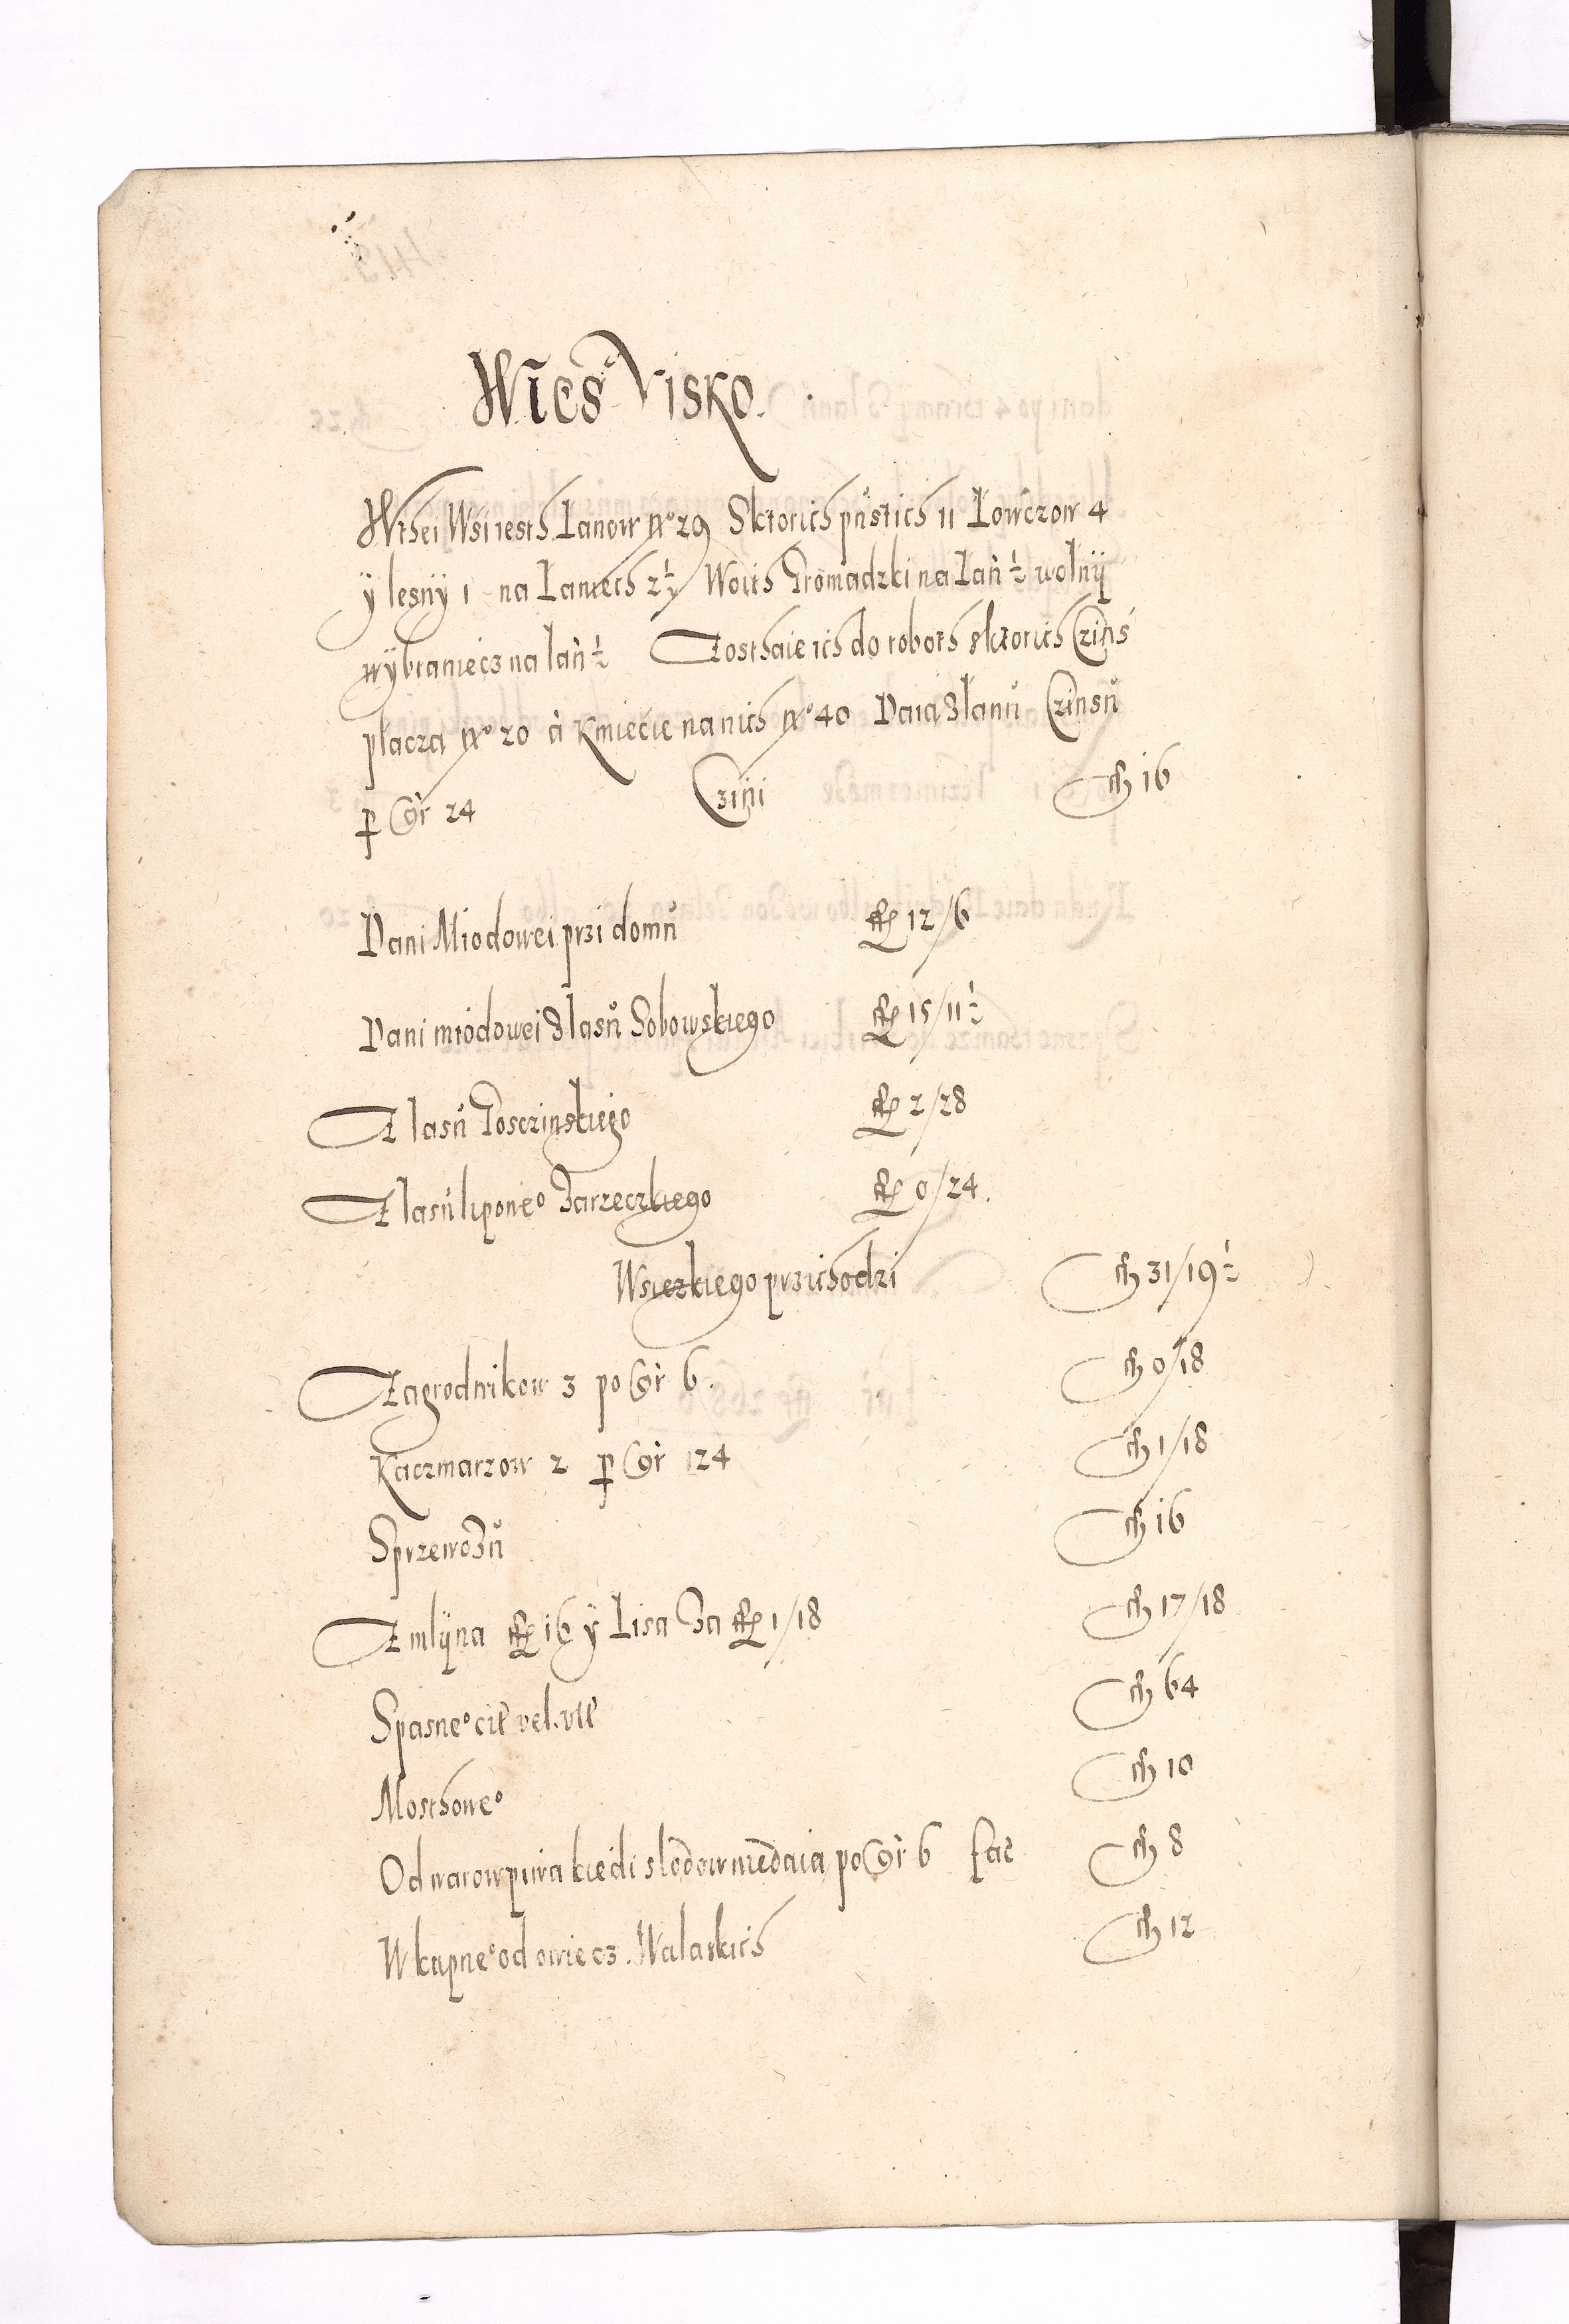 Wieś Visko.
Wthei Wsi iesth Łanow No 29 Sktorich pustich 11 Łowczow 4
ÿ lesnÿ 1 na Łaniech 2½ Woith Gromadzki na Łań ½ wolnÿ
wÿbraniecz na łań ½ Zosthaie ich do roboth sktorich Czinś
płacza No 20 à Kmiecie na nich No 40 Daią Złanu Czinsu
p Gr 24 Czini fl 16
Dani Miodowei przi domu fl 12/6
Dani miodowei Zlasu Sobowskiego fl 15/11½
Z lasu Gosczinskiego fl 2/28
Z lasu liponeo Zarzeczkiego fl 0/24.
Wsiezkiego przichodzi fl 31/19½
Zagrodnikow 3 po Gr 6. fl 0/18
Kaczmarzow 2 p Gr 24 fl 1/18
Sprzewozu fl 16
Z młÿna fl 16 ÿ Lisa Za fl 1/18 fl 17/18
Spasneo cit vel. vtt fl 64
Mosthoweo fl 10
Od warow piwa kiedi słodow nie daią po Gr 6 fac fl 8
Wkupneo od owiecz Wałaskich fl 12